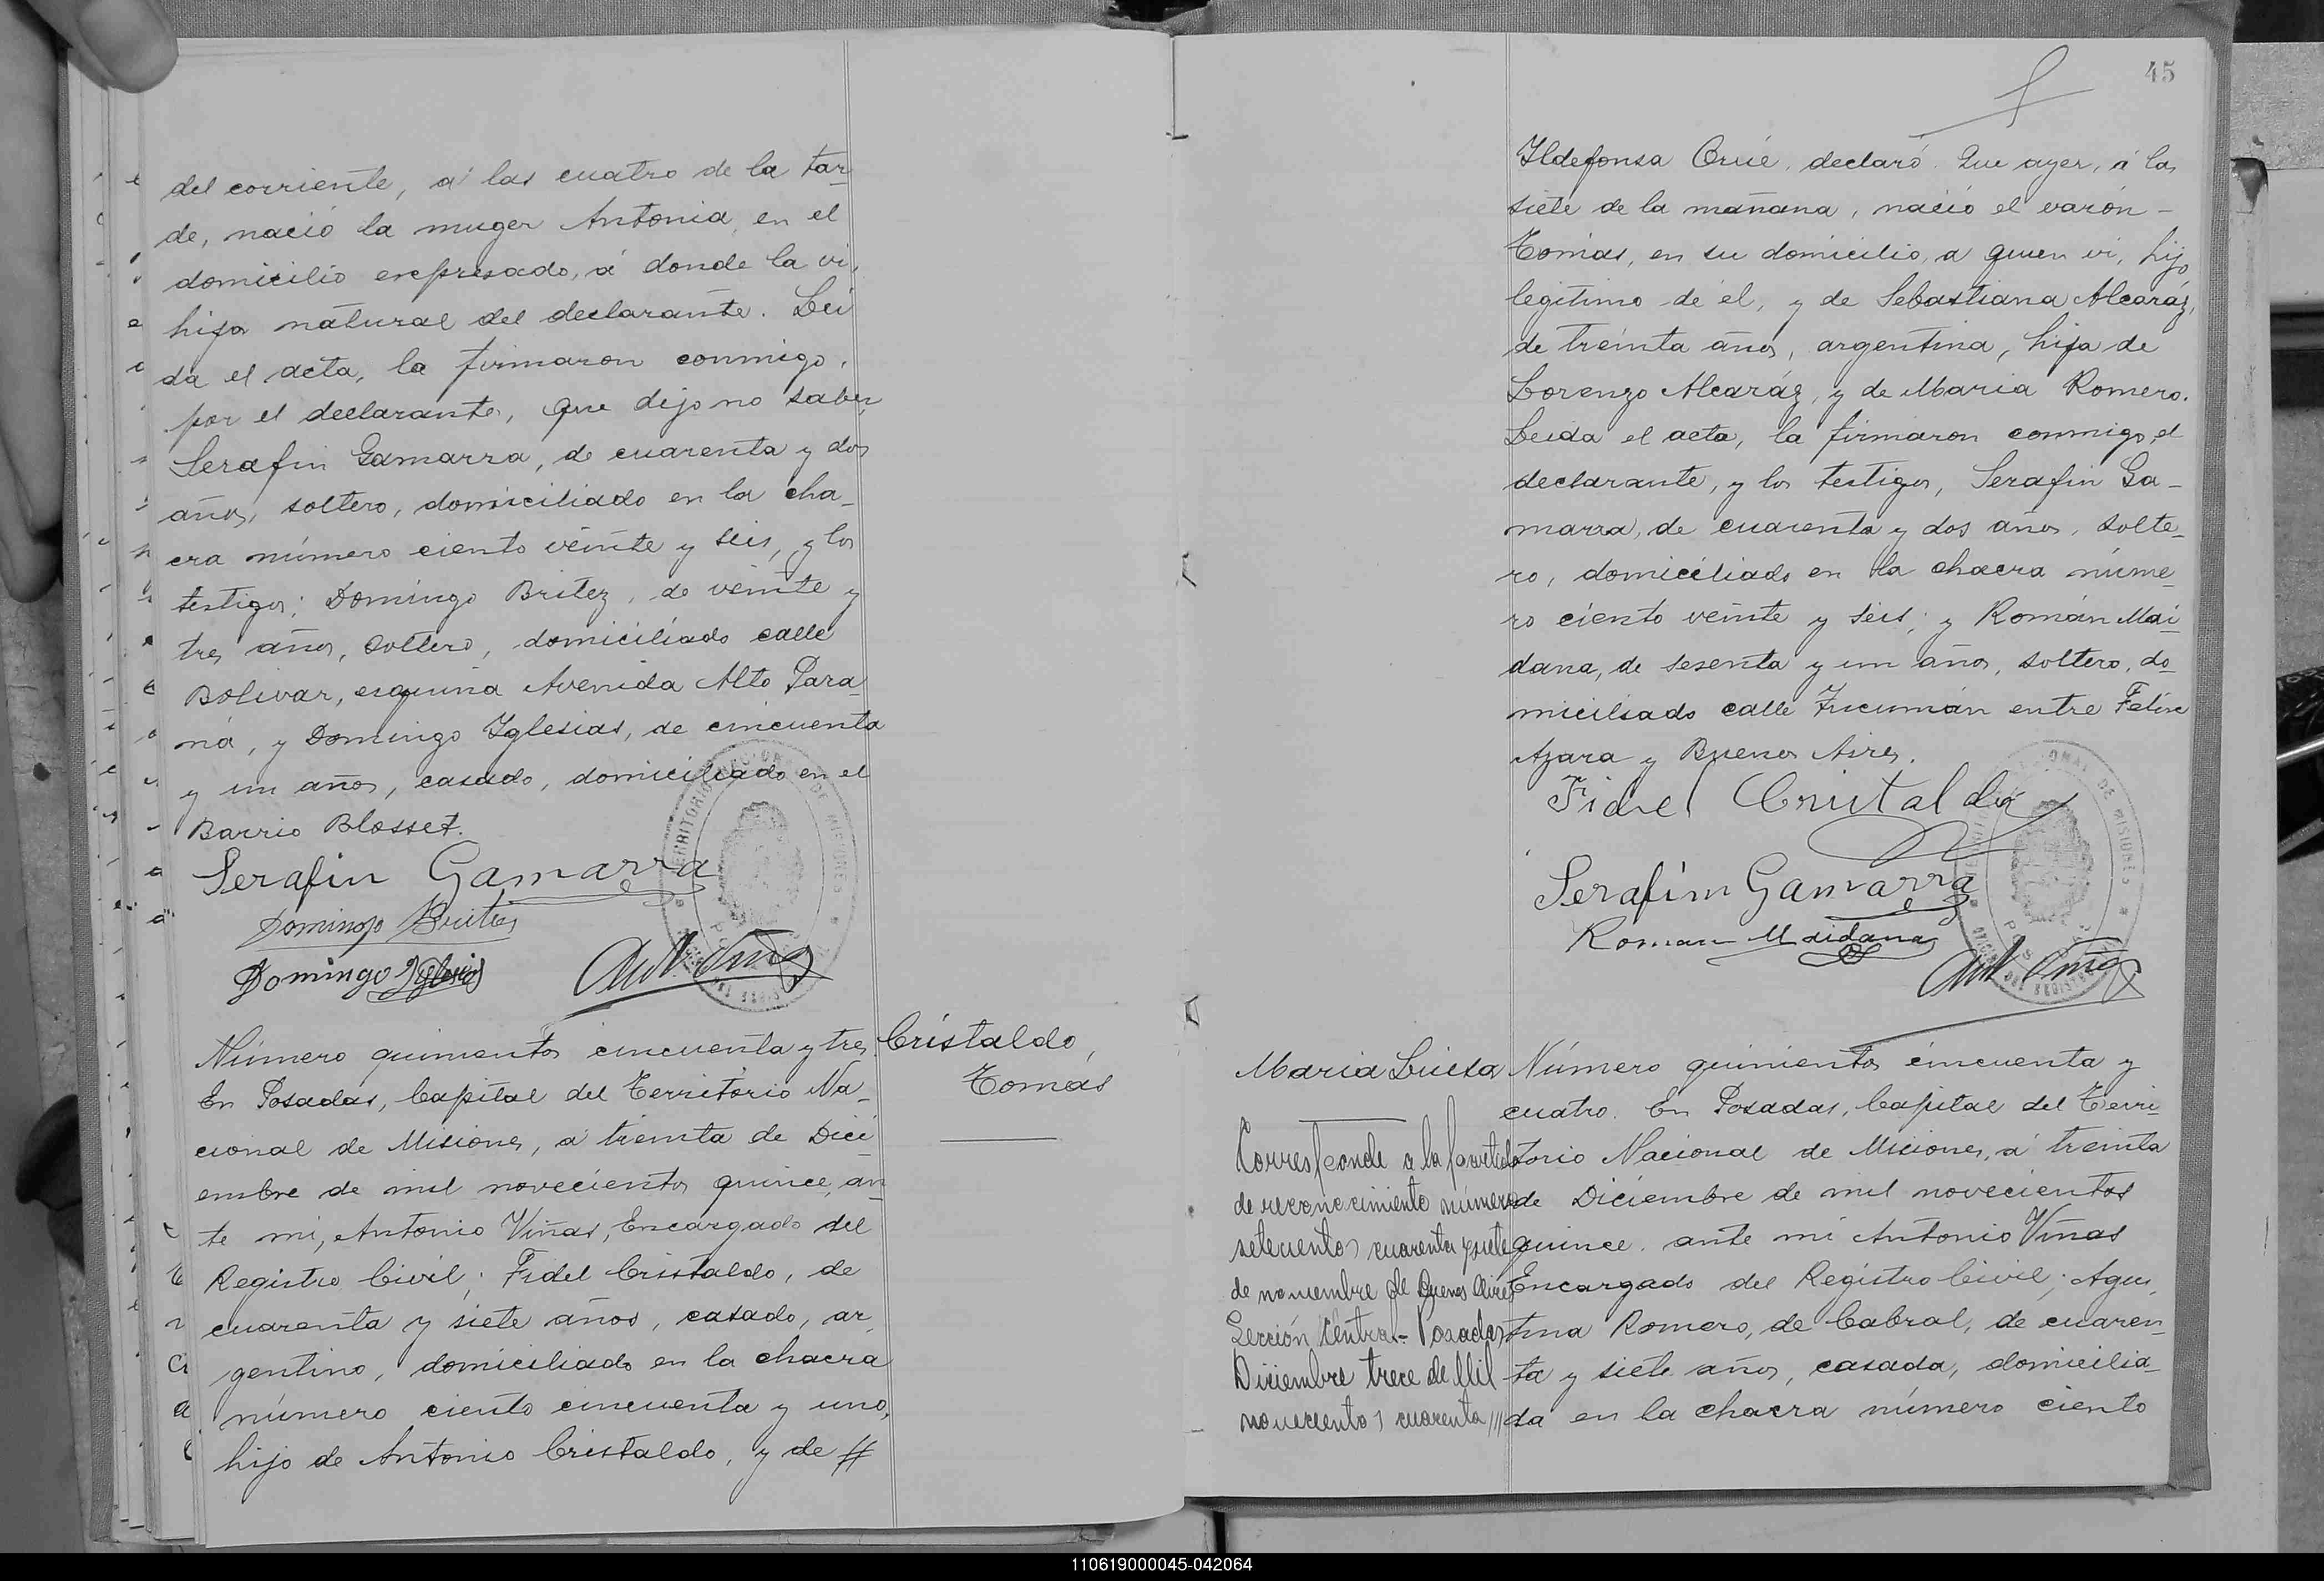 del corriente, á las cuatro de la tar-
de, nació la muger Antonia, en el
domicilio expresado, á donde la vi,
hija natural del declarante. Lei
da el acta, la firmaron conmigo,
por el declarante, que dijo no saber,
Serafin Gamarra, de cuarenta y dos
años, soltero, domiciliado en la cha-
cra número ciento veinte y seis, y los
testigos; Domingo Britez, de veinte y
tres años, soltero, domiciliado calle
Bolivar, esquina Avenida Alto Para-
ná, y Domingo Yglesias, de cincuenta
y un años, casado, domiciliado en el
Barrio Blosset.
Serafin Gamarra
Domingo Britez
Domingo Yglesias
Número quinientos cincuenta y tres.
En Posadas, Capital del Territorio Na-
cional de Misiones, a treinta de Dici-
embre de mil novecientos quince, an-
te mi, Antonio Viñas, Encargado del
Registro Civil; Fidel Cristaldo, de
cuarenta y siete años, casado, ar-
gentino, domiciliado en la chacra
número ciento cincuenta y uno,
hijo de Antonio Cristaldo, y de #
Cristaldo,
Tomás
45
Yldefonsa Orué, declaró. Que ayer, á las
siete de la mañana, nació el varón -
Tomás, en su domicilio, a quien vi, hijo
legitimo de él, y de Sebastiana Alcaráz,
de treinta años, argentina, hija de
Lorenzo Alcaráz, y de Maria Romero.
Leida el acta, la firmaron conmigo, el
declarante, y los testigos, Serafin Ga-
marra, de cuarenta y dos años, solte-
ro, domiciliado en la chacra núme-
ro ciento veinte y seis; y Román Mai-
dana, de sesenta y un años, soltero, do-
miciliado calle Tucumán entre Felix
Azara y Buenos Aires.
Fidel Cristaldo
Serafin Gamarra
Roman Maidana
Maria Luisa
Corresponde a la partida
de reconocimiento número
setecientos cuarenta y siete
de noviembre de Buenos Aires
Sección Central - Posadas,
Diciembre trece de Mil
novecientos cuarenta ///
Número quinientos cincuenta y
cuatro. En Posadas, Capital del Terri-
torio Nacional de Misiones, a treinta
de Diciembre de mil novecientos
quince, ante mi Antonio Viñas
Encargado del Registro Civil; Agus-
tina Romero, de Cabral, de cuaren-
ta y siete años, casada, domicilia-
da en la chacra número ciento
110619000045-042064